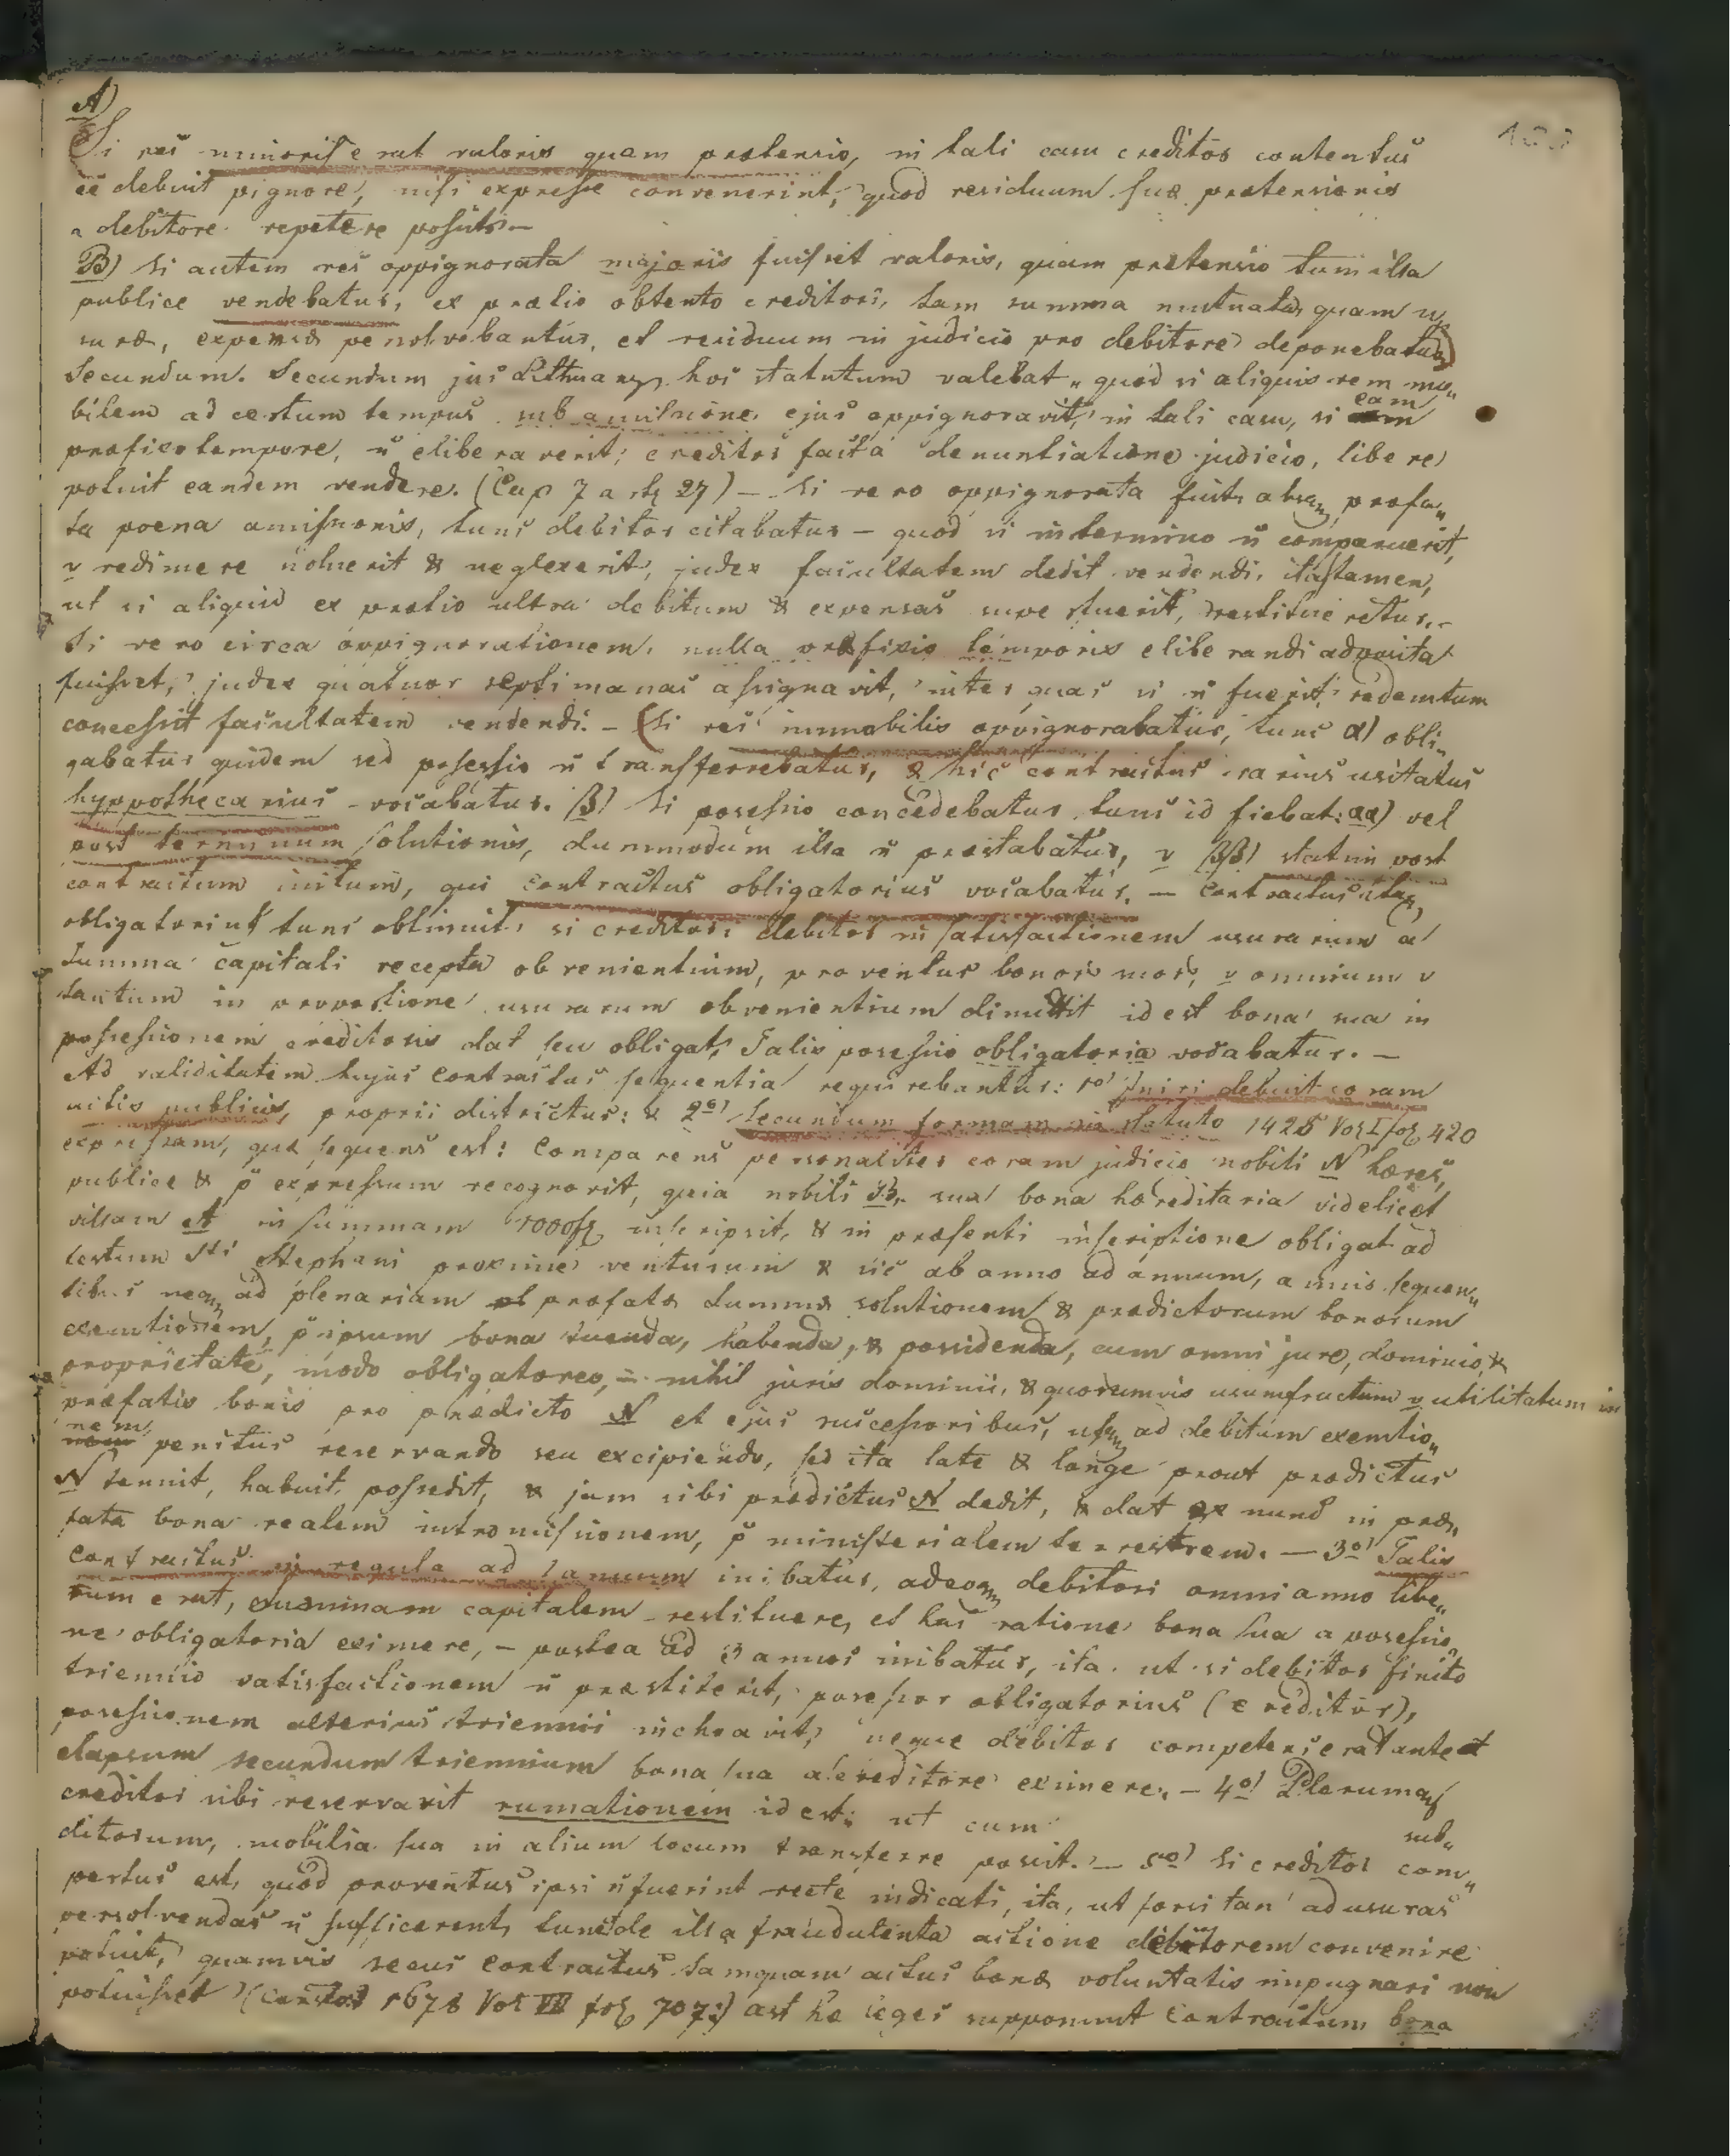 A)
Si res minoris erat valoris quam prætensio, in tali casu creditor contentus
ee debuit pignore, nisi expresse convenerint, quod residuum suæ prætensionis
a debitore repetere possit. —
B) Si autem res oppignorata majoris fuisset valoris, quam prætensio tum illa
publice vendebatur, ex prætio obtento creditori, tam summa mutuata, quam u„
suræ, expensæ persolvebantur, et residuum in judicio pro debitore deponebatur)
Secundum. Secundum jus Lithuanq hoc statutum valebat „ quod si aliquis rem mo„
bilem ad certum tempus sub amissione ejus oppignoravit, in tali casu, si eam
præfixo tempore, ñ eliberaverit; creditor facta denuntiatione judicio, libere
potuit eandem vendere. (Cap 7 art 27) — Si vero oppignorata fuit absq præfa„
ta poena amissionis, tunc debitor citabatur — quod si in termino ñ comparuerit,
v redimere noluerit & neglexerit, judex facultatem dedit vendendi, itatamen,
ut si aliquid ex prætio ultra debitum & expensas superfuerit, restitueretur. —
Si vero circa oppignorationem, nulla præfixio temporis eliberandi adposita
fuisset, judex quatuor septimanas assignavit, inter quas si ñ fuerit redemtum
concessit facultatem vendendi. — (Si res immobilis oppignorabatur, tunc α) obli„
gabatur quidem sed posessio ñ transferrebatur, & hic contractus rarius usitatus
hyppothecarius vocabatur. β) Si posessio concedebatur tunc id fiebat: αα) vel
post terminum solutionis, dummodum illa ñ præstabatur, v ββ) statim post
contractum initum, qui contractus obligatorius vocabatur. — Contractus itaq,
obligatorius tunc obtinuit, si creditori debitor in satisfactionem usurarum a
Summa capitali recepta obvenientium, proventus bonor suor, v omnium v
tantum in proportione usurarum obvenientium dimittit id est bona sua in
possessionem creditoris dat seu obligat, Talis posessio obligatoria vocabatur. —
Ad validitatem hujus Contractus sequentia requirebantur: 1o) Iniri debuit coram
actis publicis, proprii districtus: & 2o) Secundum formam in statuto 1428 Vol I fol 420
expressam, quæ sequens est: Comparens personaliter coram judicio nobili N hæres,
publice & p expressum recognovit, quia nobili B, sua bona hæreditaria videlicet
villam A in summam 1000fl inscripsit, & in præsenti inscriptione obligat ad
festum Sti Stephani proxime venturum & sic ab anno ad annum, annis sequen„
tibus ad plenariam præfatæ summæ solutionem & prædictorum bonorum
exemtionem, p ipsum bona tuenda, habenda, & possidenda, cum omni jure, dominio, &
proprietate, modo obligatoreo, — nihil juris dominii, & quorumvis usumfructum v utilitatum in
præfatis bonis pro prædicto N et ejus successoribus, usq ad debitum exemtio„
nem, penitus reservando seu excipiendo, sed ita late & longe prout prædictus
N tenuit, habuit, possedit, & jam sibi prædictus N dedit, & dat ex nunc in præ„
fata bona realem intromissionem, p ministerialem terrestrem. — 3o) Talis
Contractus in regula ad 1 annum inibatur, adeoq debitori omni anno libe„
rum erat, summam capitalem restituere, et hac ratione bona sua a posessio„
ne obligatoria eximere, — postea ad 3 annos inibatur, ita ut si debitor finito
triennio satisfactionem ñ præstiterit, posessor obligatorius (creditor),
posessionem alterius triennii inchoavit, neque debitor competens erat ante
elapsum secundum triennium bona sua a creditore eximere. — 4o) Plerumq
creditor sibi reservavit rumationem id est: ut cum
sub„
ditorum, mobilia sua in alium locum transferre possit. — 5o) Si creditor com„
pertus est, quod proventus ipsi ñ fuerint recte indicati, ita, ut forsitan ad usuras
persolvendas ñ sufficerent, tunc de illa fraudulenta actione debitorem convenire
potuit, quamvis secus Contractus tamquam actus bonæ voluntatis impugnari non
potuisset (Constot 1678 Vol VII fol 707:) ast hæ leges supponunt Contractum bona